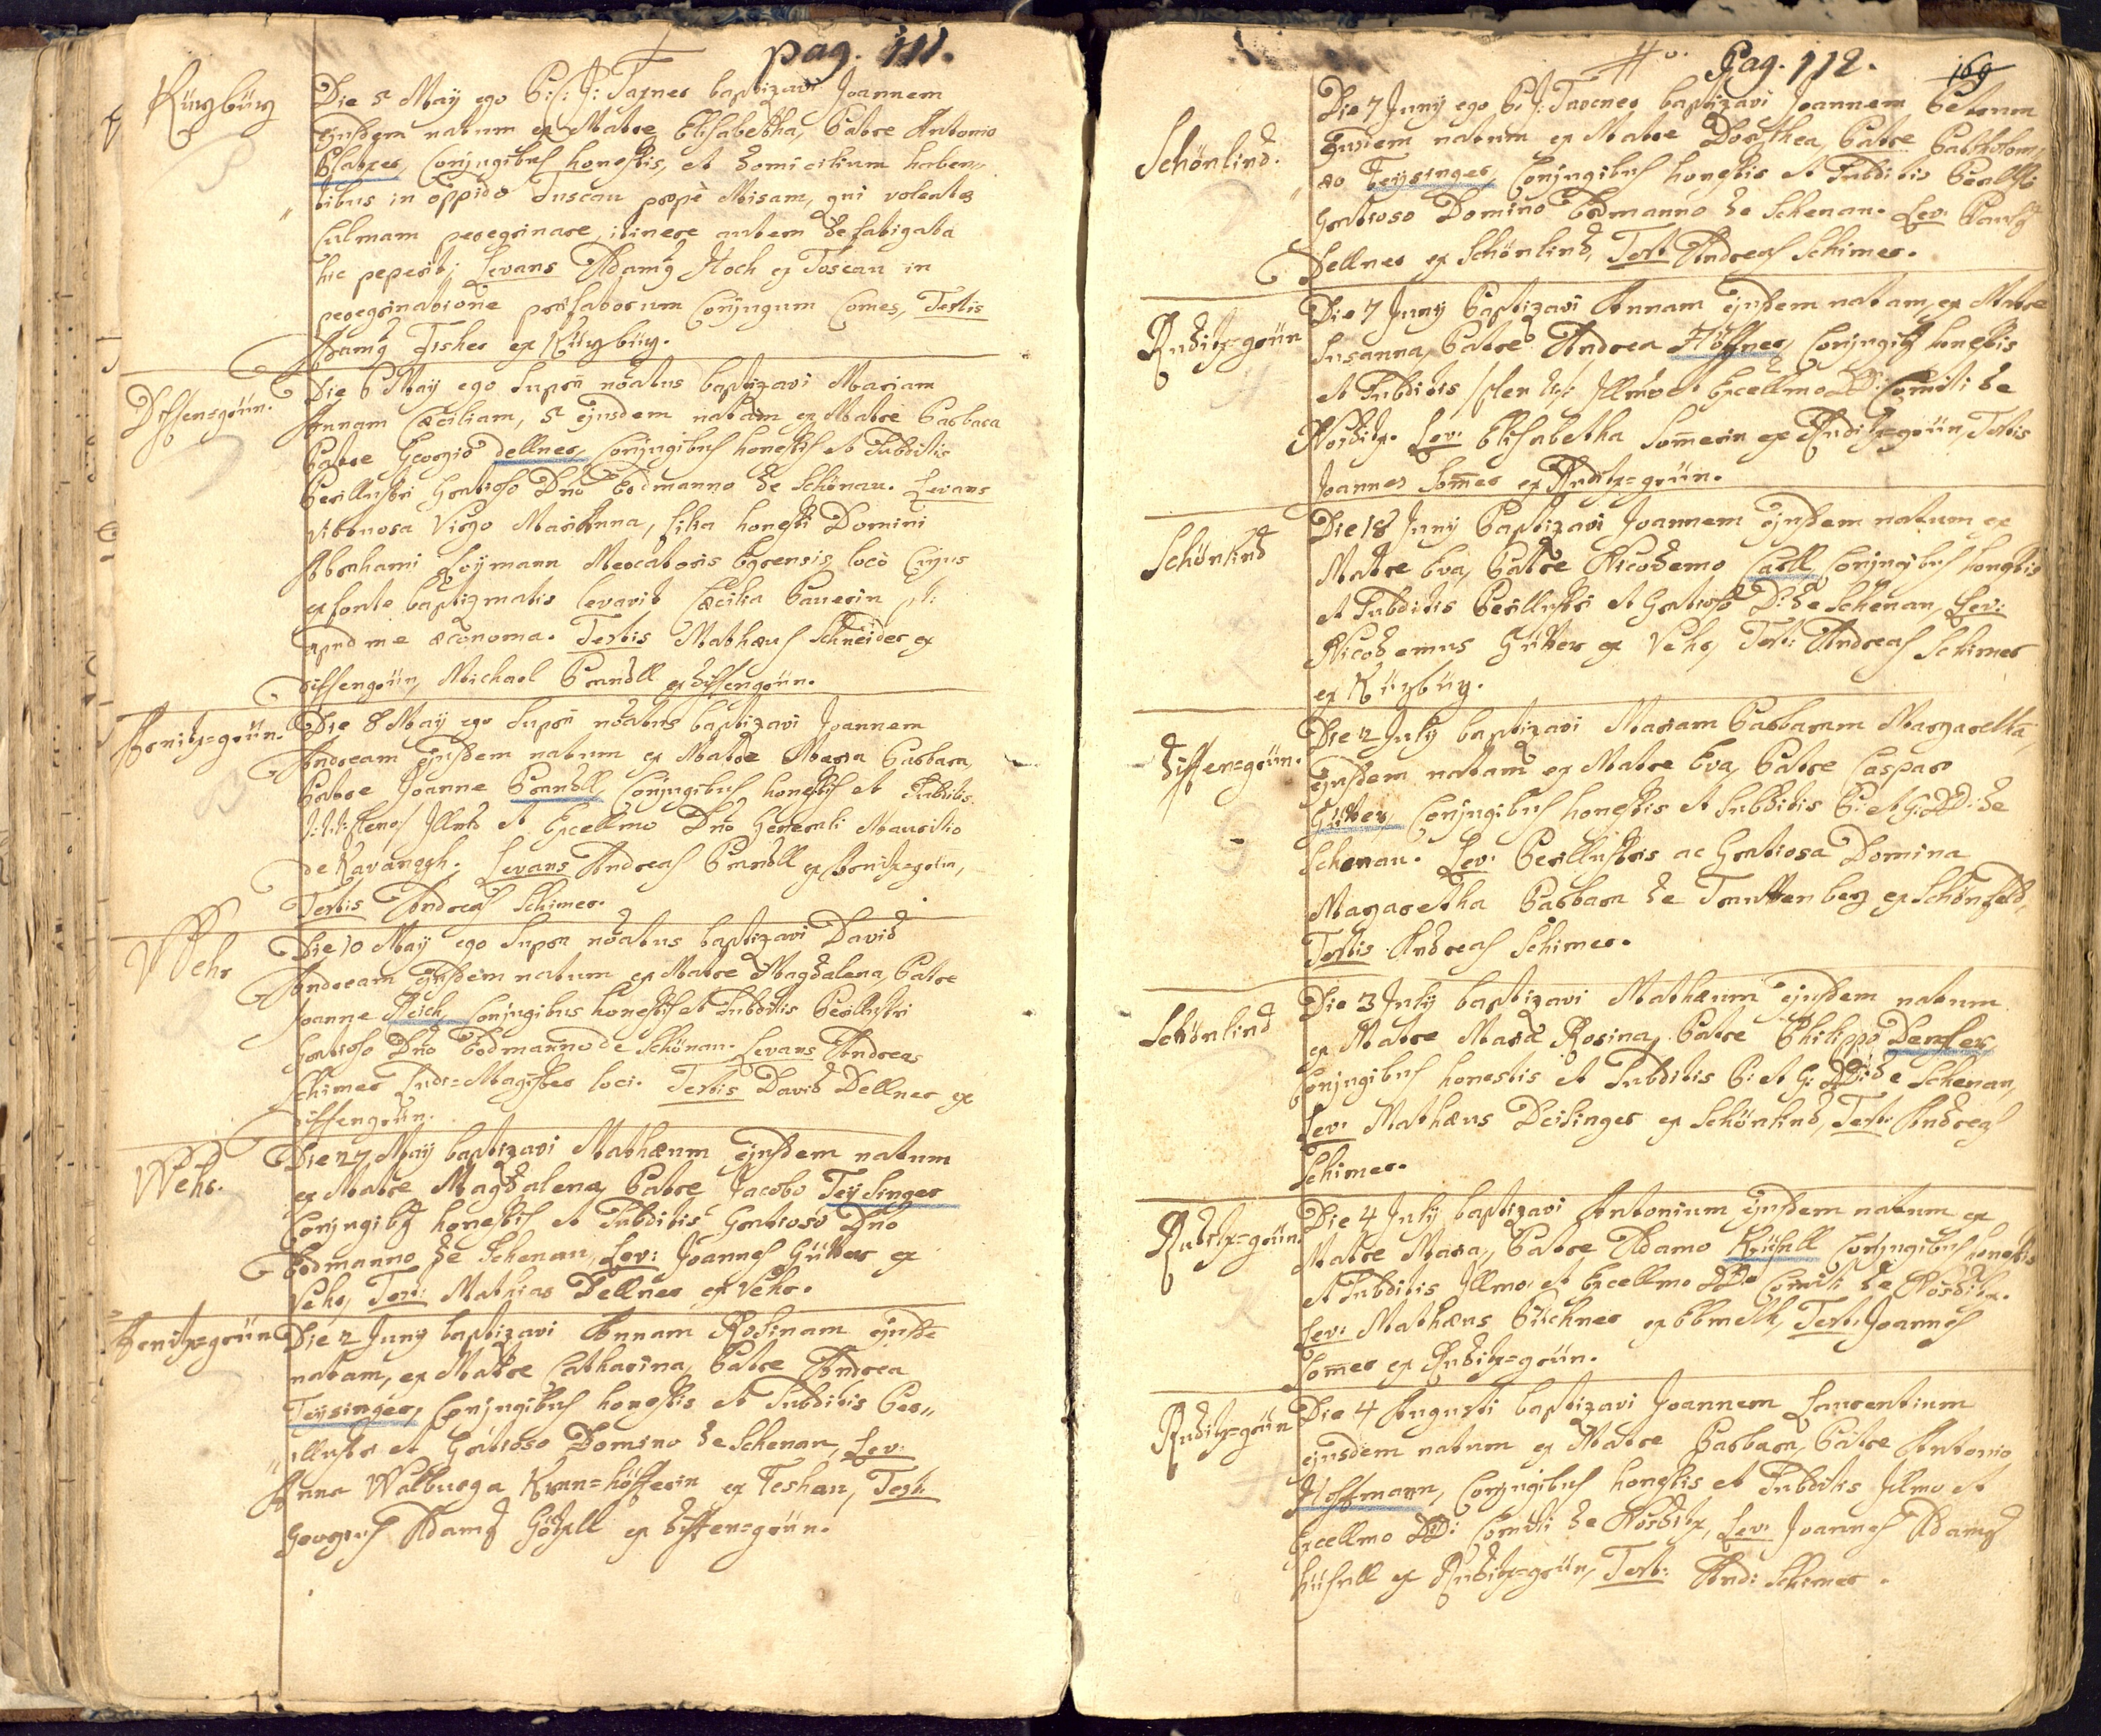 pag. 111.
Kürgbürg
Die 5 May ego P: J: Taxner baptizavi Joannem
ejusdem natum ex Matre Elisabetha, Patre Antonio
Platzer, Conjugibus honestis, et domicilium haben„
tibus in oppido Tuscau propè Misam, qui volentes
Culmam peregrinare, itinere autem defatigata
hic peperit; Levans Adamg Hoch ex Toscau in
peregrinatione praefatorum Conjugum Comes, Testis
Adamg Fisher ex Kürgbürg.
Dissengrün.
Die 6 May ego supra nõatus baptizavi Mariam
Annam Cæciliam, 5 ejusdem natam ex Matre Barbara
Patre Georgio Dellner, Conjugibus honestis et Subditis
Perillustri Gratioso Dño Erdmanno de Schönau. Levans
virtuosa Virgo Mariãnna, filia honesti Domini
Abrahami Loÿmann Mercatoris Egrensis, locò Cujus
ex fonte baptizmatis levavit Cæcilia Bauerin
apud me œconoma. Testis Mathæus Schneider ex
dissengrün, Michael Brandll ex dissengrün.
Arnitz=grün.
Die 8 May ego supra nõatus baptizavi Joannem
Andream ejusdem natum ex Matre Maria Barbara,
Patre Joanne Brandll, Conjugibus honestis et Subditis
Illmo et Excellmo Dño Generali Mauritio
de Kavanagh. Levans Andreas Brandll ex Arnitz=grün,
Testis Andreas Schimer.
Wehr
Die 10 May ego supra nõatus baptizavi David
Andream ejusdem natum ex Matre Magdalena, Patre
Joanne Reich, Conjugibus honestis et Subditis Perillustri
Gratioso Dño Erdmanno de Schönau. Levans Andreas
Schimer Ludi=Magister loci. Testis David Dellner ex
dissengrün.
Wehr.
Die 27 May baptizavi Mathæum ejusdem natum
ex Matre Magdalena, Patre Jacobo Teÿsinger
Conjugibg honestis et Subditis Gratioso Dño
Erdmanno de Schenau, Lev: Joannes Gütter ex
Vehr, Test: Mathias Dellner ex Vehr.
Arnitz=grün
Die 2 Juny baptizavi Annam Rosinam ejusdẽ
natam, ex Matre Catharina, Patre Andrea
Teÿsinger, Conjugibus honestis et Subditis Per„
„illustri et Gratioso Domino de Schenau, Lev:
Anna Walburga höfferin ex Teshau, Test:
Georgius Adamg Götzll ex dissen=grün.
Pag. 112.
169
Schönlind.
Die 7 Juny ego P: J: Taxner baptizavi Joannem Petrum
Eundem natum ex Matre Dorothea, Patre Bartholom„
„æo Teÿsinger, Conjugibus honestis et Subditis Perillstri
Gratioso Domino Erdmanno de Schenau. Lev: Paulg
Dellner ex Schönlind, Test: Andreas Schimer.
Ruditz=grün
Die 7 Juny baptizavi Annam ejusdem natam, ex Matre
Susanna, Patre Andrea Höffner, Conjugibg honestis
et Subditis Illmo et Excellmo DD: Comiti de
Nostitz. Lev: Elisabetha Som̃erin ex Ruditz=grün, Testis
Joannes Som̃er ex Ruditz=grün.
Schönlind
Die 18 Juny baptizavi Joannem ejusdem natum ex
Matre Eva, Patre Nicodemo Carll Conjugibus honestis
et Subditis Perillustri et Gratioso D: de Schenau, Lev:
Nicodemus Gütter ex Vehr, Test: Andreas Schimer
ex Kürgbürg.
dissen=grün.
Die 2 July baptizavi Mariam Barbaram Margarethã,
ejusdem natam ex Matre Eva, Patre Casparo
Gütter, Conjugibus honestis et Subditis P: et G: DD: de
Schenau. Lev: Perillustris ac Gratiosa Domina
Margaretha Barbara de Trauttenberg ex Schönfeld,
Testis Andreas Schimer.
Schönlind
Die 3 July baptizavi Mathæum ejusdem natum
ex Matre Maria Rosina, Patre Philippo Denfler
Conjugibus honestis et Subditis P: et G: DD: de Schenau,
Lev: Mathæus Deisinger ex Schönlind, Test: Andreas
Schimer.
Ruditz=grün
Die 4 July baptizavi Antonium ejusdem natum ex
Matre Maria, Patre Adamo Krüsll Conjugibus honestis
et Subditis Illmo et Excellmo DD: Comiti de Nostitz.
Lev: Mathæus Püchner ex Ebmeth, Test: Joannes
Som̃er ex Ruditz=grün.
Ruditz=grün
Die 4 Augusti baptizavi Joannem Laurentium
ejusdem natum ex Matre Barbara, Patre Antonio
Hoffmann, Conjugibus honestis et Subditis Illmo et
Excellmo DD: Comiti de Nostitz, Lev: Joannes Adamg
ex Ruditz=grün, Test: And: Schimer.